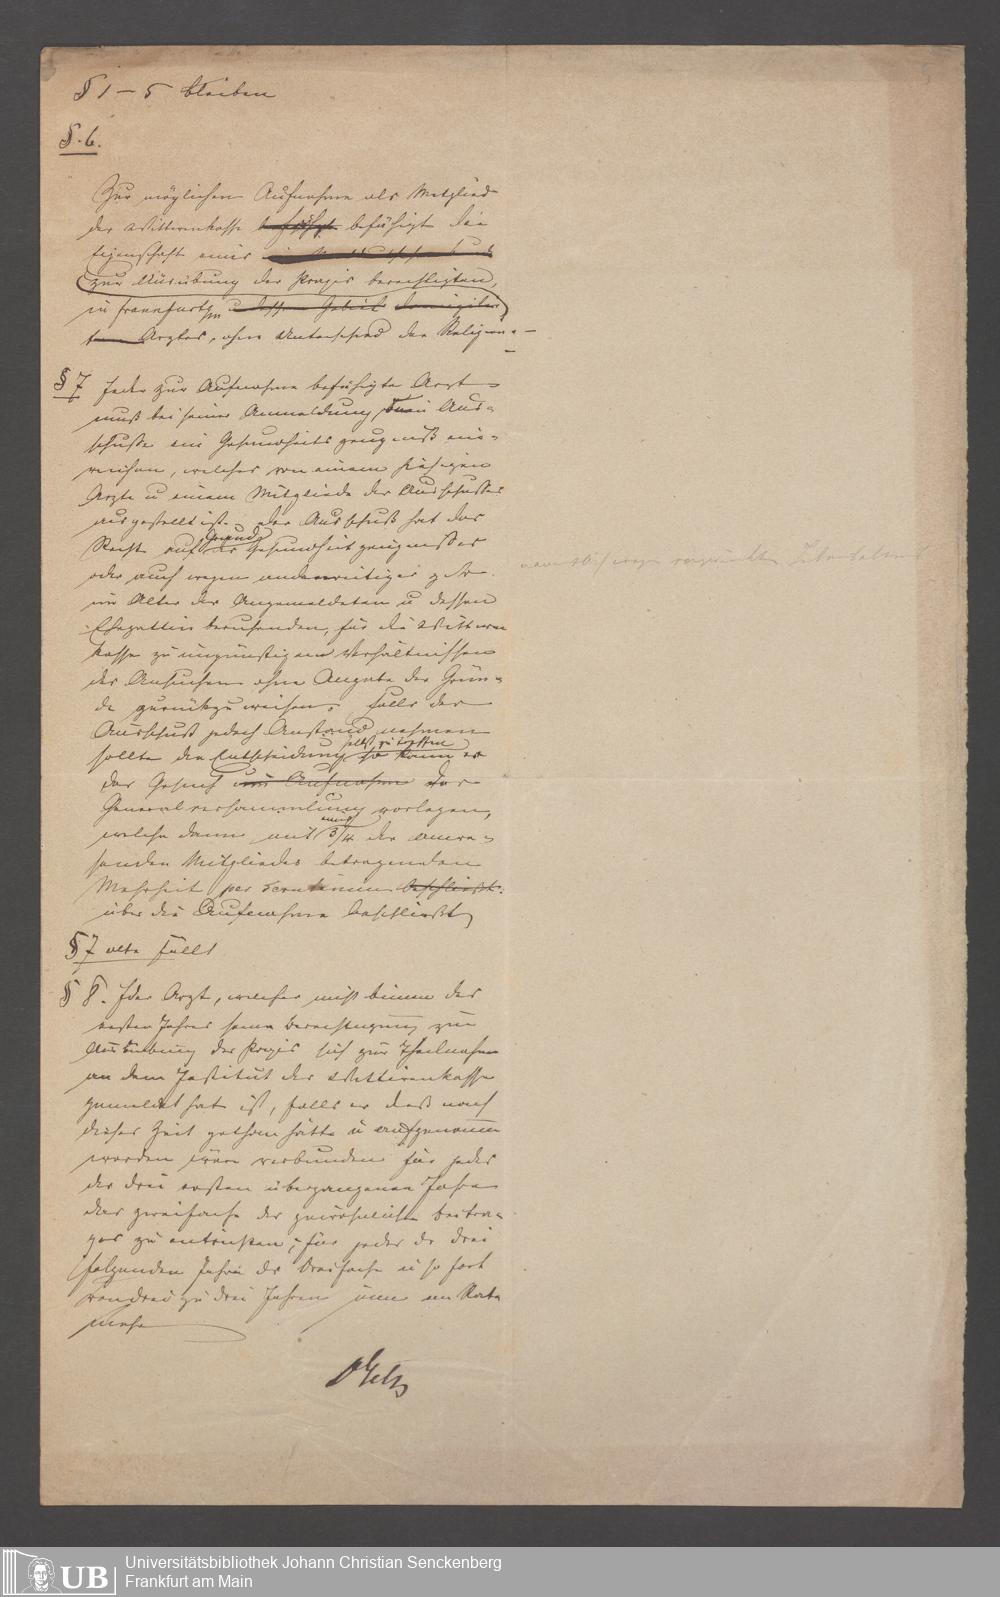 § 1 – 5 bleiben
§. 6.
Zur möglichen Aufnahme als Mitglied
der Wittwenkasse befähigt befähigt die
Eigenschaft eines
zur Ausübung der Praxis berechtigten,
in Frankfurt u dessen Gebiet domizilir
ten Arztes, ohne Unterschied der Religion.
§ 7 Jeder zur Aufnahme befähigte Arzt
muß bei seiner Anmeldung beim Aus-
schusse ein Gesundheitszeugniß ein-
reichen, welches von einem hiesigen
Arzte u einem Mitgliede des Ausschusses
ausgestellt ist. Der Ausschuß hat das
Recht auf Grund des Gesundheitszeugnisses
oder auch wegen anderweitiger
im Alter des Angemeldeten u dessen
Ehegattin beruhenden, für die Wittwen
kasse zu ungünstigen Verhältnissen
das Ansuchen ohne Angabe der Grün-
de zurückzuweisen. Falls der
Ausschuß jedoch Anstand nehmen
sollte die Entscheidung selbst zu treffen so kann er
das Gesuch um Aufnahme der
Generalversammlung vorlegen,
welche dann mit einer 3/4 der anwe-
senden Mitglieder betragenden
Mehrheit per scrutinium beschließt.
über die Aufnahme beschließt
§ 7 alte fällt
§ 8. Jeder Arzt, welcher nicht binnen des
ersten Jahres seiner Berechtigung zur
Ausübung der Praxis sich zur Theilnahme
an dem Institut der Wittwenkasse
gemeldet hat ist, falls er dieß nach
dieser Zeit gethan hätte u aufgenommen
worden wäre verbunden für jedes
der drei ersten übergangenen Jahre
das zweifache des gewöhnlichen Beitra-
ges zu entrichten; für jedes der drei
folgenden Jahre das Dreifache u so fort
von drei zu drei Jahren immer ein Rata
mehr
Universitätsbibliothek Johann Christian Senckenberg
Frankfurt am Main
UB